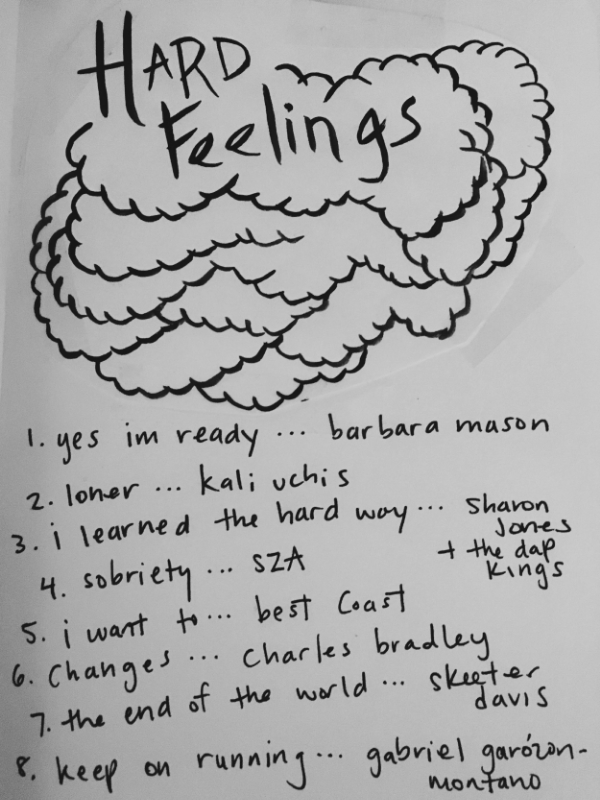 HARD
Feelings
1. yes im ready ... barbara mason
2. loner ... kali uchis
3. i learned the hard way ... Sharon
Jones
+ the dap
Kings
4. sobriety ... SZA
5. i want to ... best Coast
6. Changes ... Charles bradley
7. the end of the world ... skeeter
davis
8. keep on running ... gabriel garózon-
montano